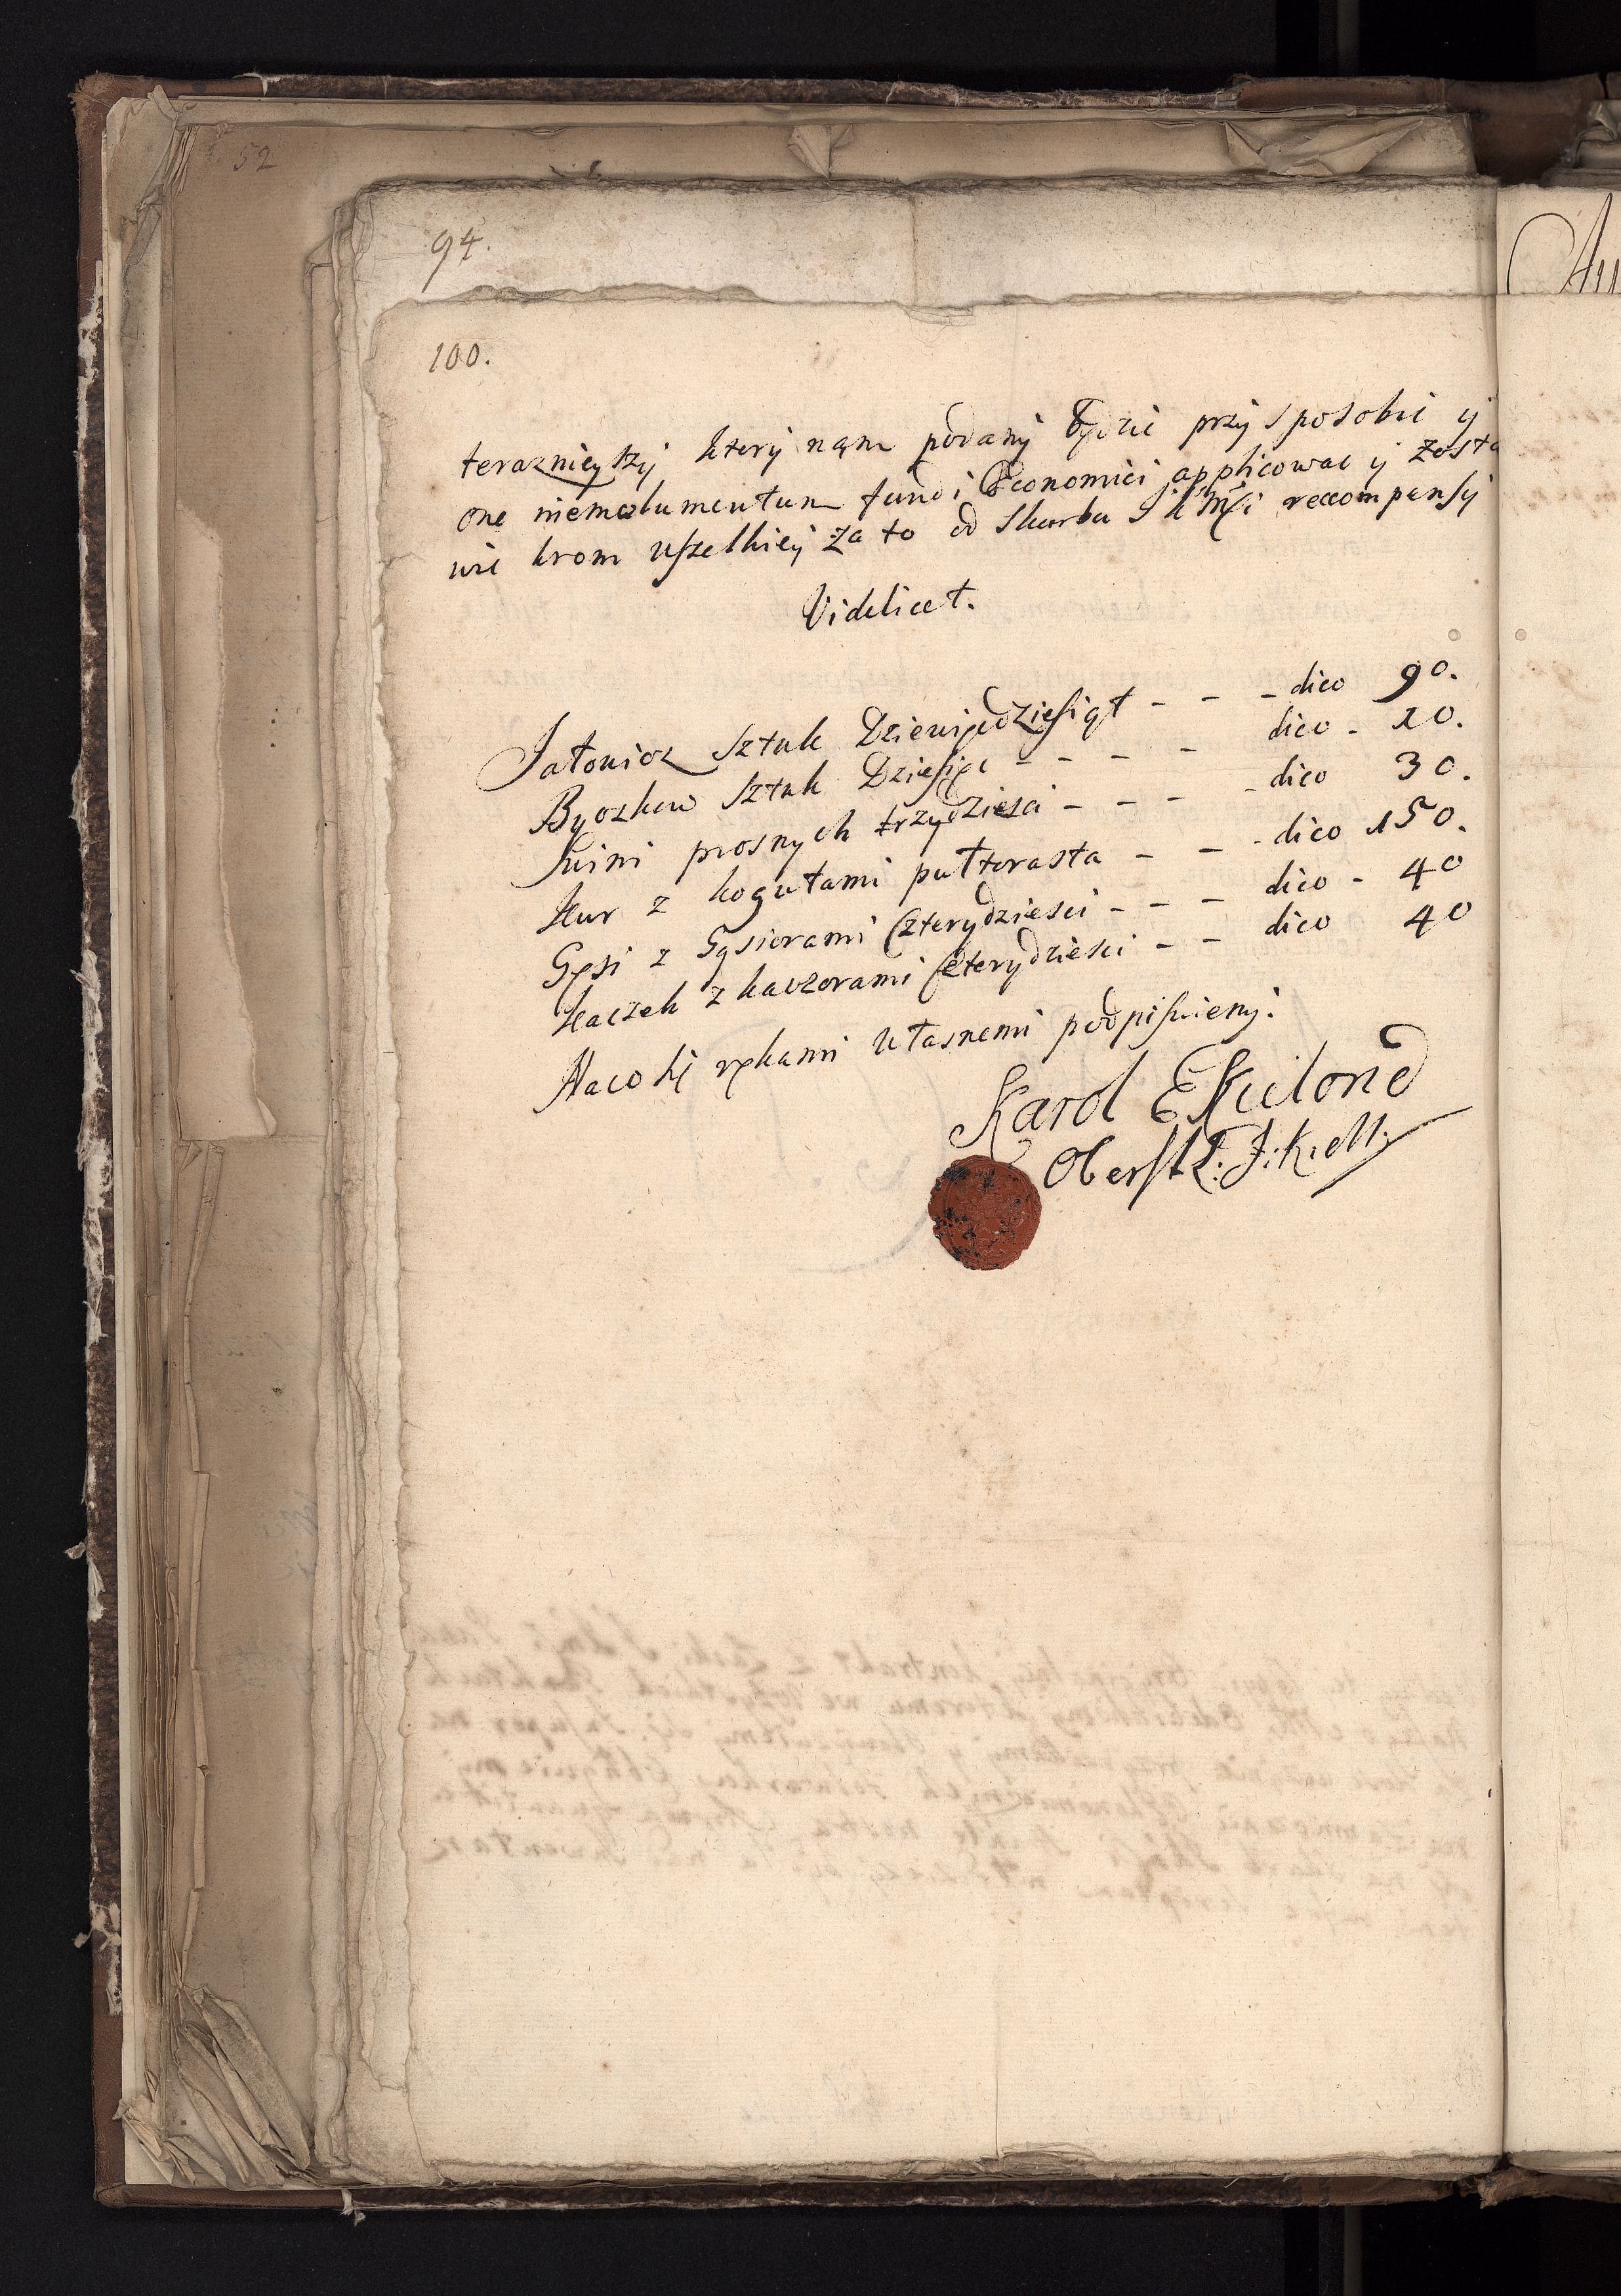 52
94.
100.
teraznieyszy ktory nąm podany będzie przysposobic y
one niemolumentum fundi Œconomici applicowac y zosta
wic krom wszelkiey za to od Skarbu J K Mſci reccompensy
Videlicet.
Jałowicz Sztuk Dziewięcdziesiąt - - - dico 90.
Byczkow Sztuk Dziesięc - - - - - dico - 10.
Swini prosnych trzydziesci - - - - dico 30.
Kur z kogutami pułtorasta - - - dico 150.
Gęsi z Gąsiorami Czterydziesci - - - dico - 40
Kaczek z kaczorami Czterydziesci - - dico 40
Naco się rękami własnemi podpisuiemy.
Karol
Oberst L. J: K: M.